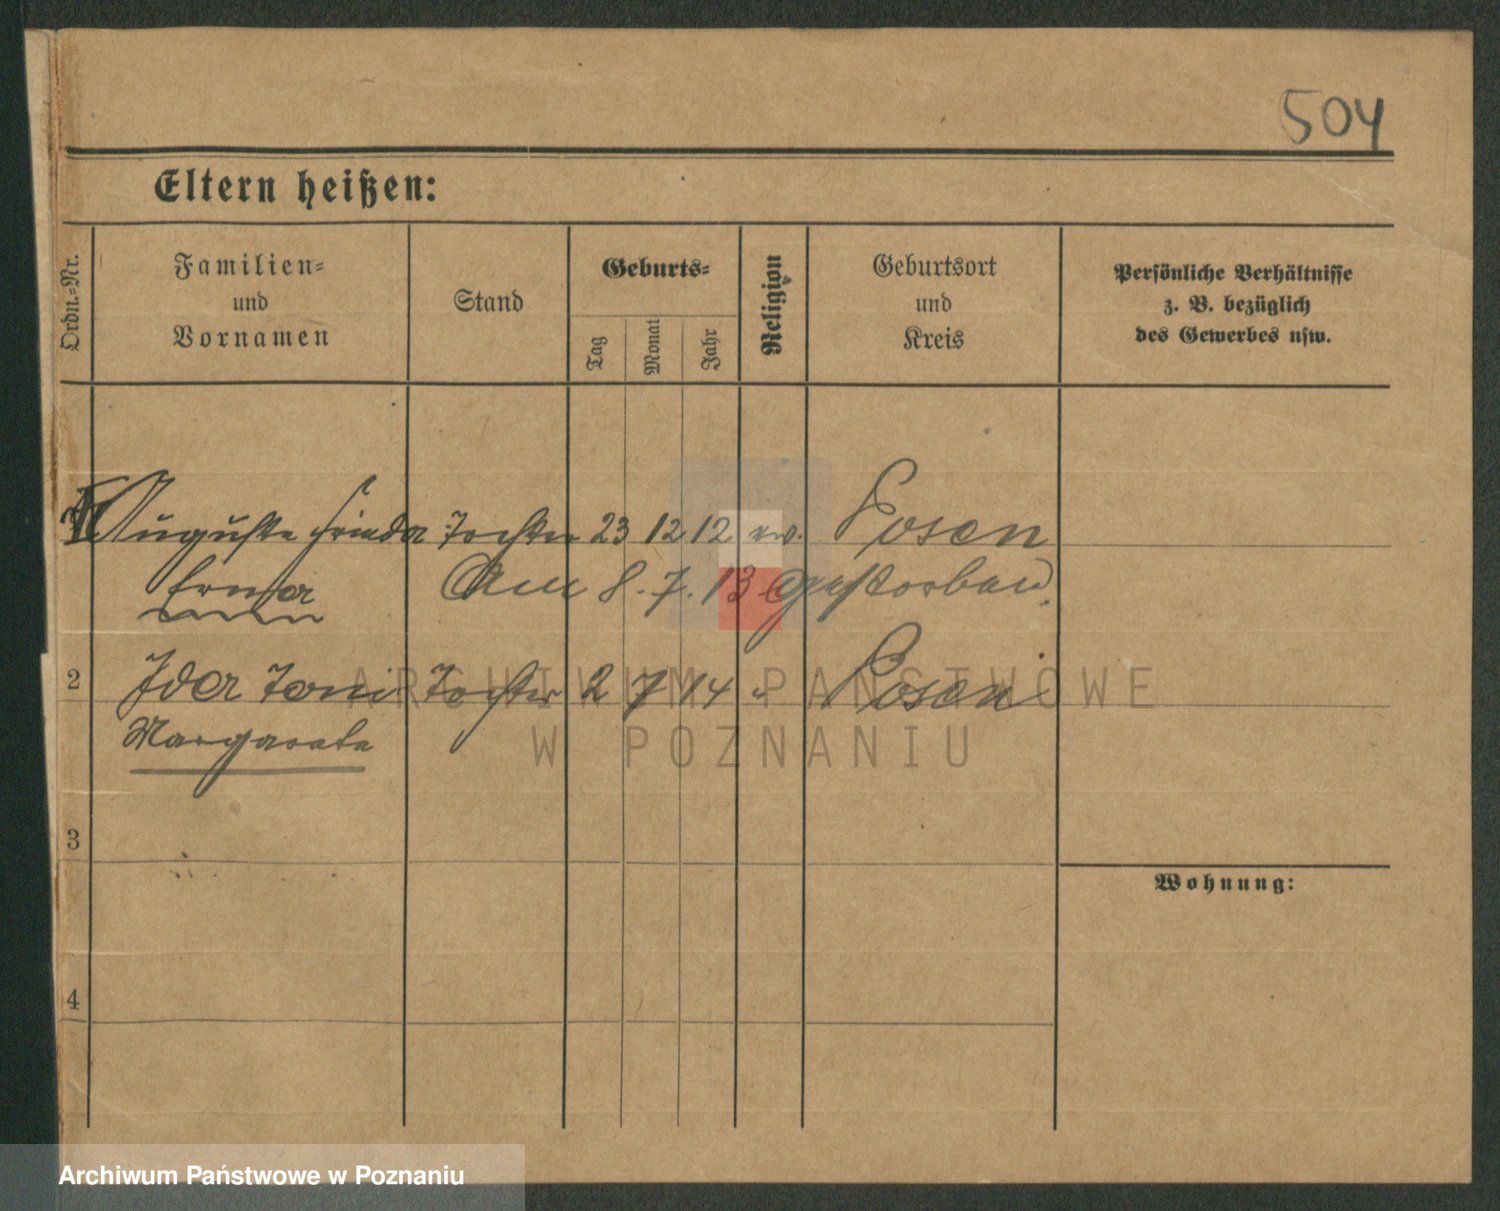 504
Eltern heißen:
Ordn.-Nr.
Familien-
und
Vornamen
Stand
Geburts-
Tag
Monat
Jahr
Religion
Geburtsort
und
Kreis
Persönliche Verhältnisse
z. B. bezüglich
des Gewerbes usw.
Auguste Frieda Tochter 23 12 12 ew. Posen
Erna Am 8. 7. 13 Gestorben.
2 Ida Toni Tochter 2 7 14 " Posen
Margareta
3
Wohnung:
4
ARCHIWUM PAŃSTWOWE
W POZNANIU
Archiwum Państwowe w Poznaniu